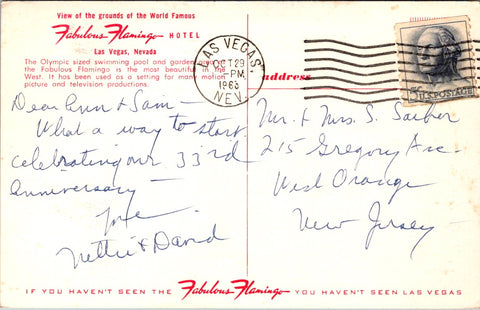 View of the grounds of the World Famous
Fabulous Flamingo HOTEL
Las Vegas, Nevada
The Olympic sized swimming pool and garden area of
the Fabulous Flamingo is the most beautiful in the
West. It has been used as a setting for many motion
picture and television productions.
LAS VEGAS
OCT 29
PM
1963
NEV.
5c U.S. POSTAGE
address
Dear Ann & Sam —
What a way to start
celebrating our 33rd
anniversary —
Love
Nettie & David
Mr. & Mrs. S. Sacher
215 Gregory Ave.
West Orange
New Jersey
IF YOU HAVEN'T SEEN THE Fabulous Flamingo YOU HAVEN'T SEEN LAS VEGAS